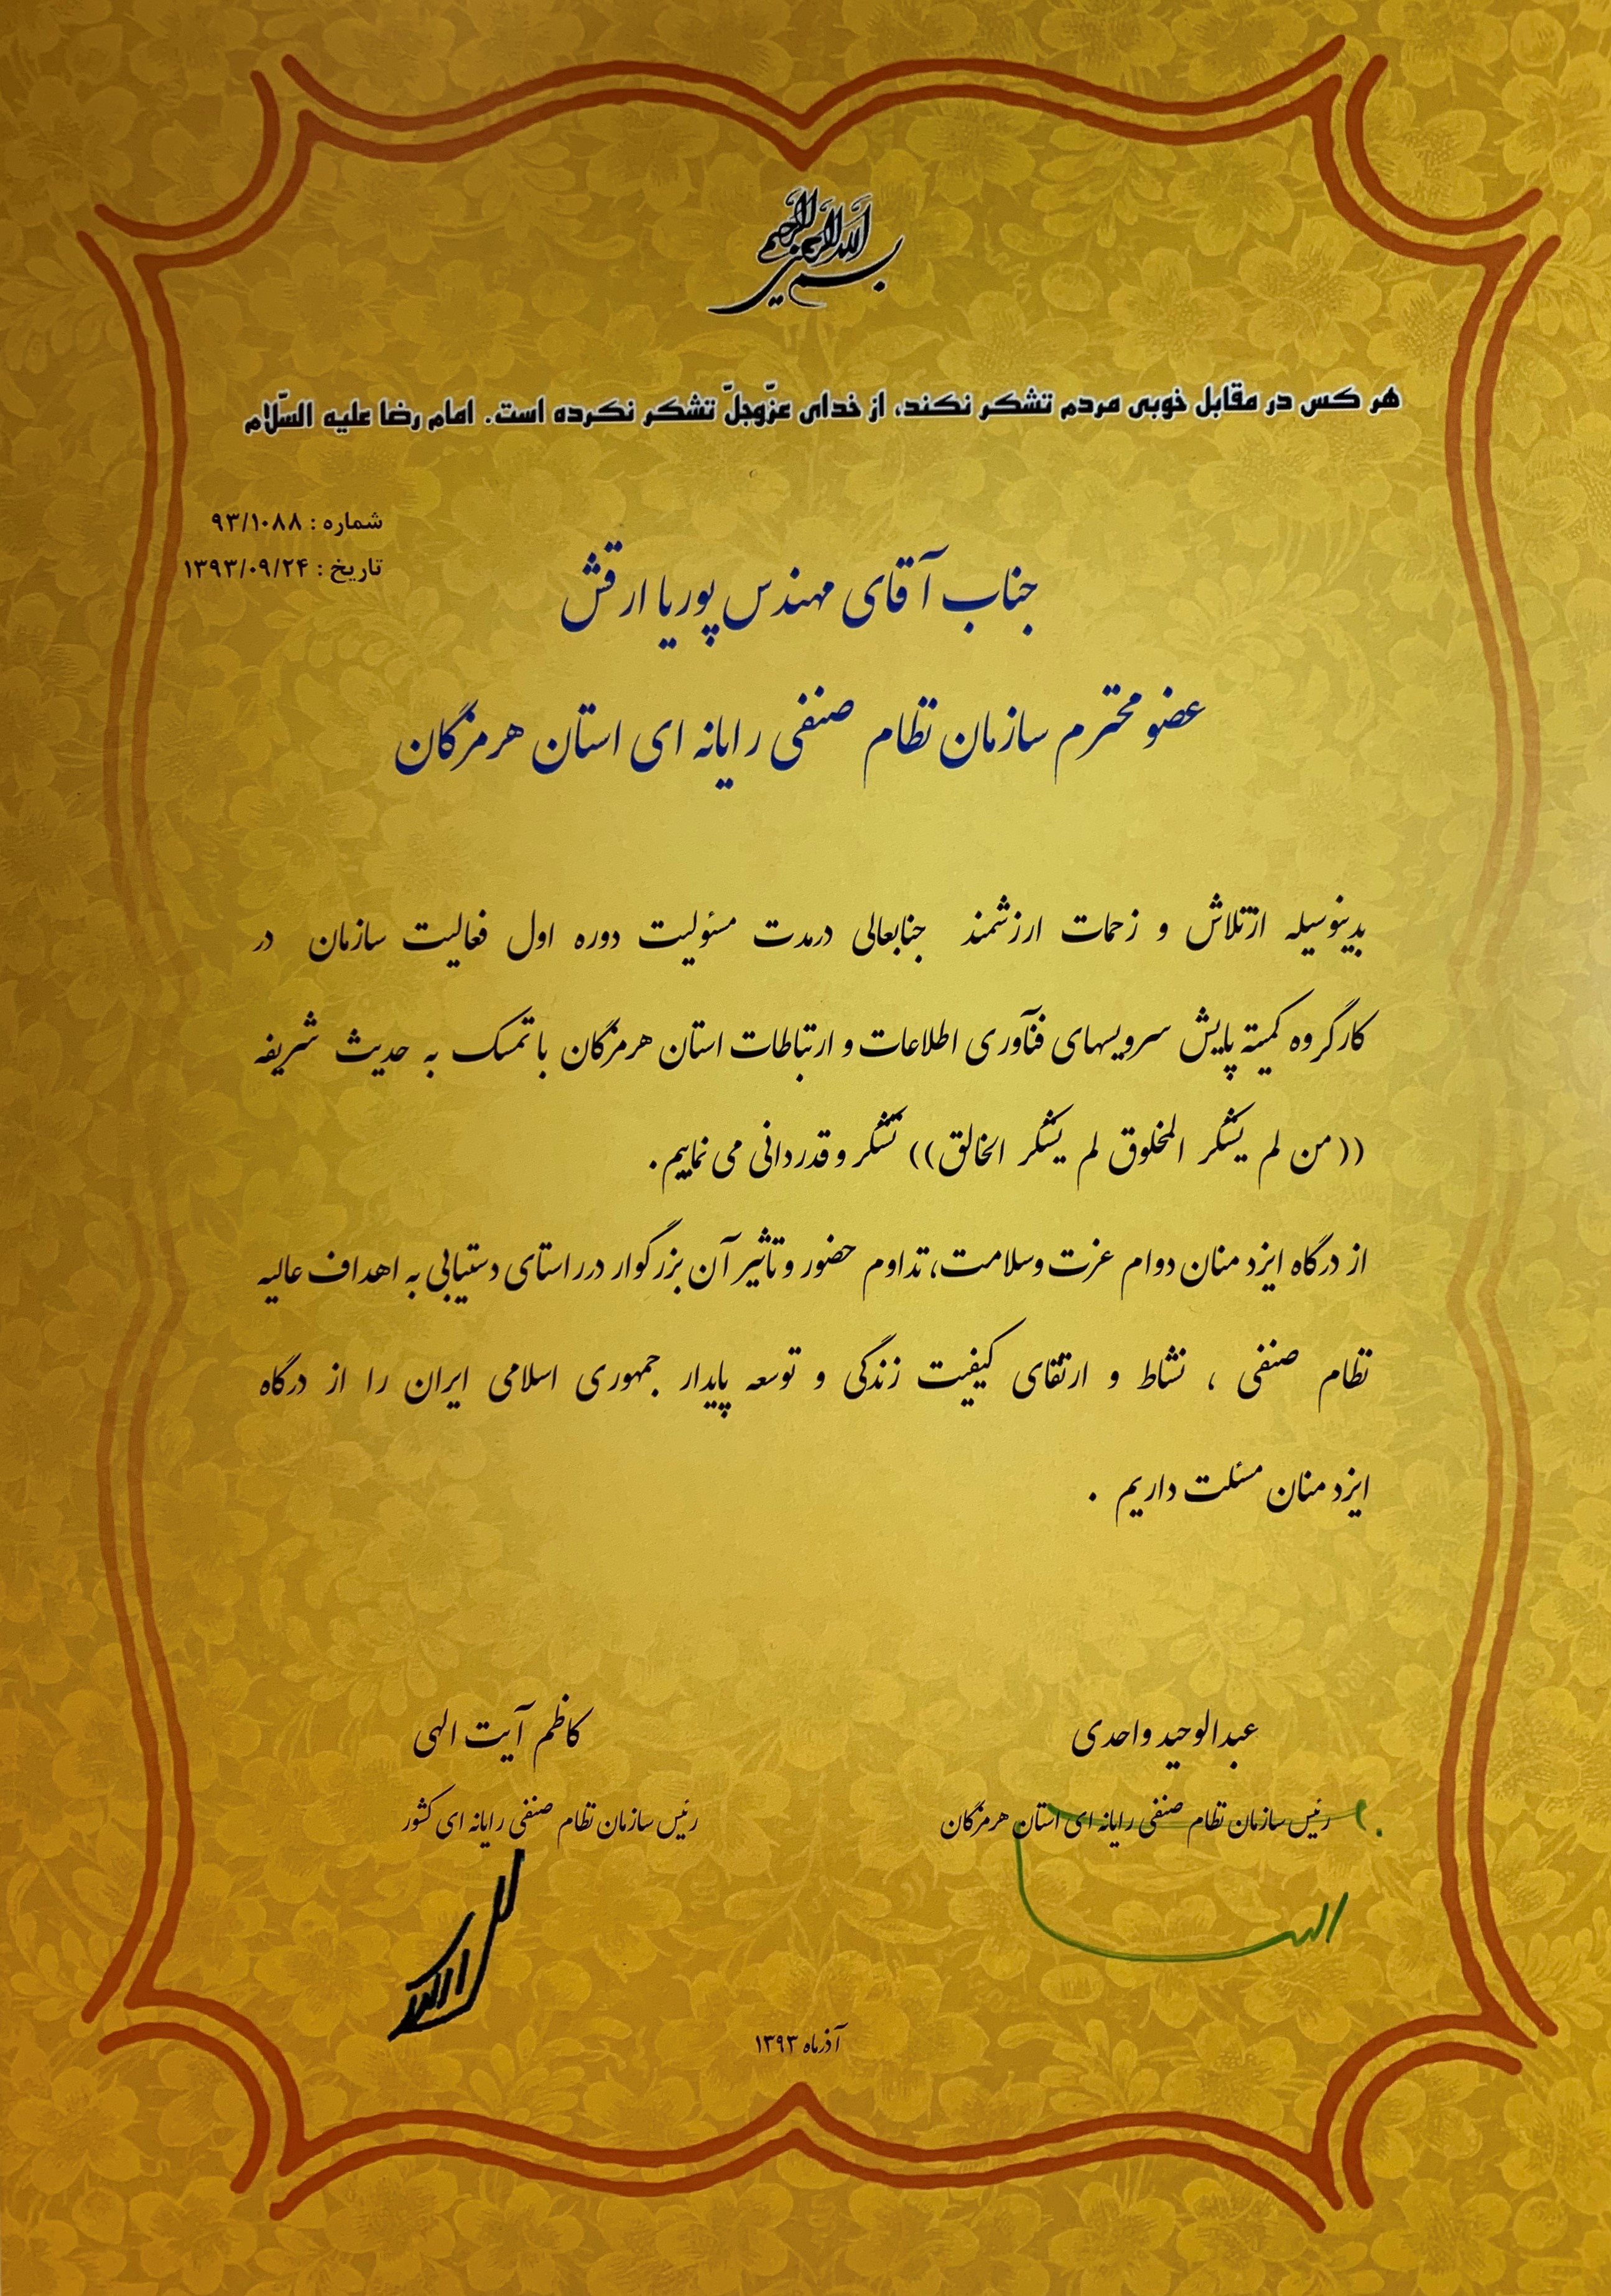 بسم الله الرحمن الرحیم
هر کس در مقابل خوبی مردم تشکر نکند، از خدای عزّوجلّ تشکر نکرده است. امام رضا علیه السّلام
شماره : ۹۳/۱۰۸۸
تاریخ : ۱۳۹۳/۰۹/۲۴
جناب آقای مهندس پوریا ارقش
عضو محترم سازمان نظام صنفی رایانه ای استان هرمزگان
بدینوسیله ازتلاش و زحمات ارزشمند جنابعالی درمدت مسئولیت دوره اول فعالیت سازمان در
کارگروه کمیته پایش سرویسهای فنآوری اطلاعات و ارتباطات استان هرمزگان با تمسک به حدیث شریفه
((من لم یشکر المخلوق لم یشکر الخالق)) تشکر و قدردانی می نماییم.
از درگاه ایزد منان دوام عزت وسلامت، تداوم حضور و تاثیر آن بزرگوار درراستای دستیابی به اهداف عالیه
نظام صنفی ، نشاط و ارتقای کیفیت زندگی و توسعه پایدار جمهوری اسلامی ایران را از درگاه
ایزد منان مسئلت داریم .
عبدالوحید واحدی
رئیس سازمان نظام صنفی رایانه ای استان هرمزگان
کاظم آیت الهی
رئیس سازمان نظام صنفی رایانه ای کشور
آذرماه ۱۳۹۳